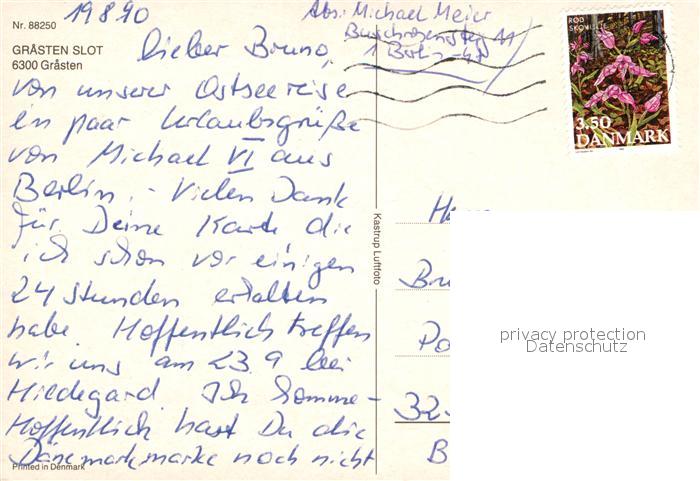 19 8 90
Nr. 88250
GRÅSTEN SLOT
6300 Gråsten
Abs. Michael Meier
1 Berlin 47
RØD SKOVLILJE
3.50
DANMARK
Lieber Bruno,
von unserer Ostseereise
ein paar Urlaubsgrüße
von Michael VI aus
Berlin. - Vielen Dank
für Deine Karte die
ich schon vor einigen
24 Stunden erhalten
habe. Hoffentlich treffen
wir uns am 23.9 bei
Hildegard. Ich komme -
Hoffentlich hast Du die
Dänemarkmarke noch nicht
Printed in Denmark
Kastrup Luftfoto
He
Bru
Po
32
B
privacy protection
Datenschutz